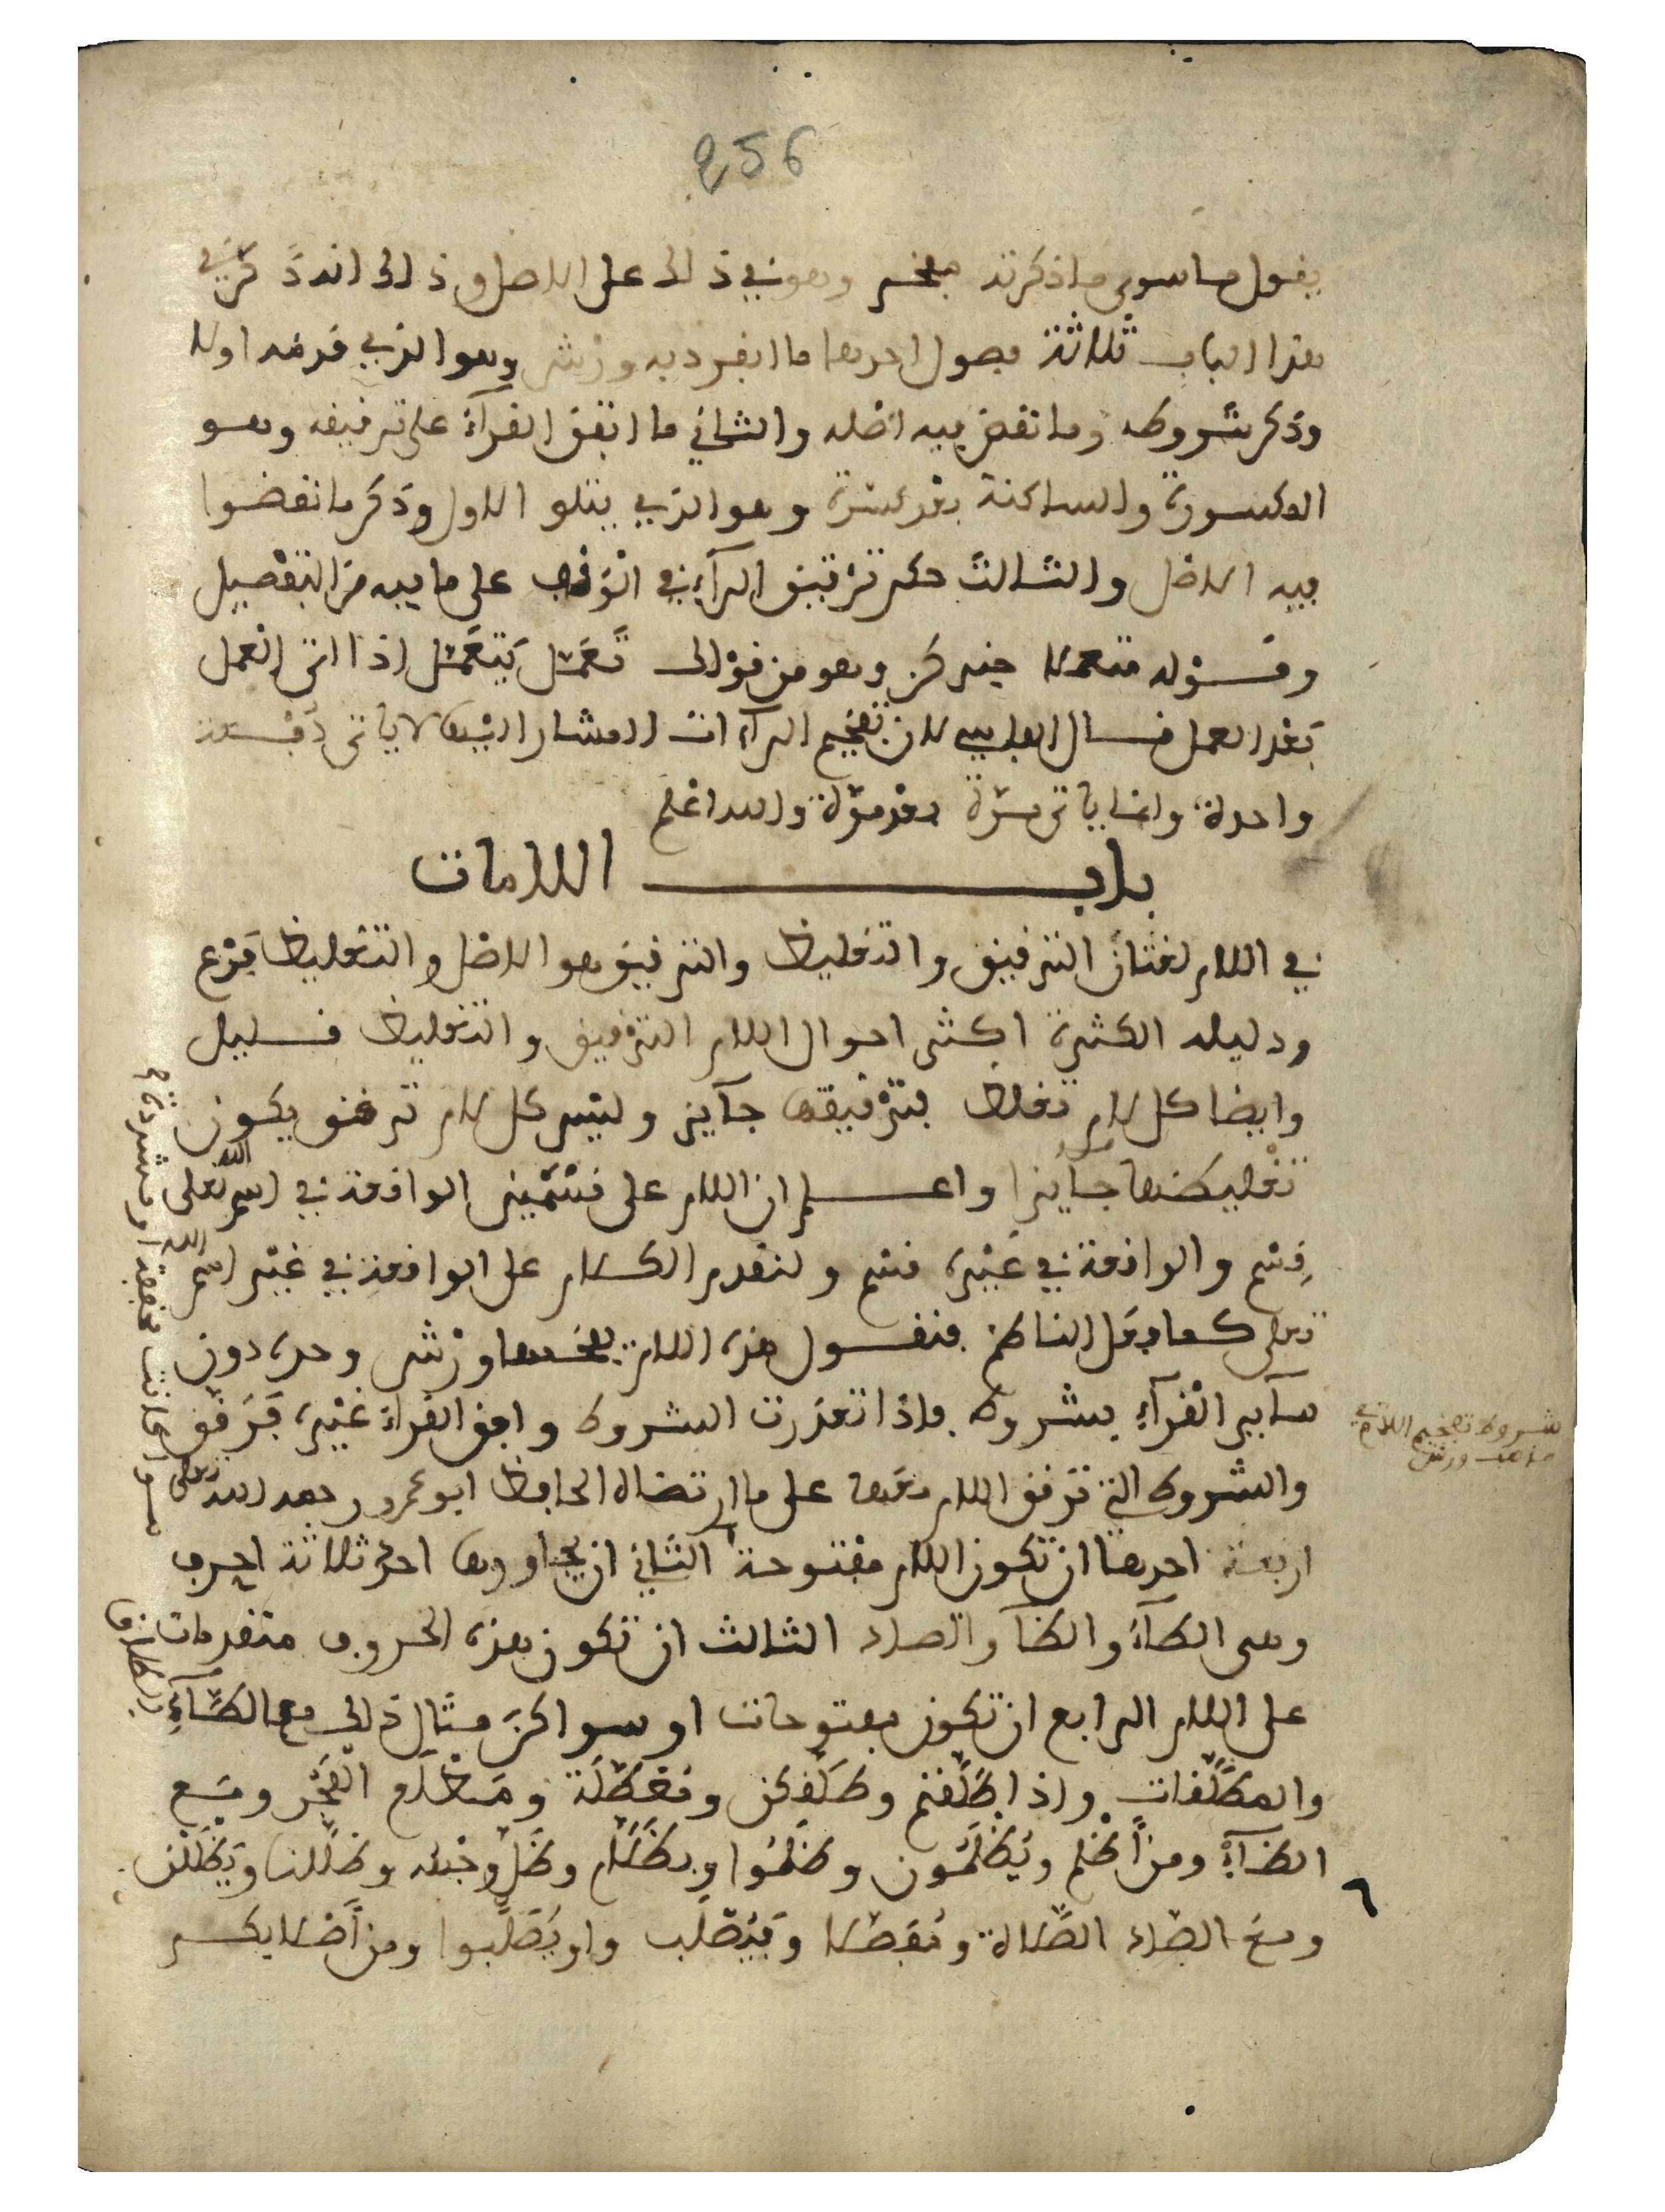 256
يقول ما سوى ما ذكرته مفخم وهو في ذلك على الاصل وذلك انه ذكر في
هذا الباب ثلاثة فصول احدها ما انفرد به ورش وهو الذي قدمه اولا
وذكر شروطه وما نقض فيه اصله والثاني ما اتفق القرآء على ترقيقه وهو
المكسورة والساكنة بعد كسرة وهو الذي يتلو الاول وذكر ما نقضوا
فيه الاصل والثالث حكم ترقيق الرآء في الوقف على ما فيه من التفصيل
وقوله متعملا وهو من قولك تَعَمَّل يَتَعَمَّل اذا اتى العمل
بَعْد العمل قال الفاسي لان تفخيم الرآءات المشار اليها لا ياتي دفعة
واحدة وانما ياتي مرّة بعد مرّة والله اعلم
باب اللامات
في اللام لغتان الترقيق والتغليظ والترقيق هو الاصل والتغليظ فرع
ودليله الكثرة اكثر احوال اللام الترقيق والتغليظ قليل
وايضا كل لام تغلظ فترقيقها جآيز وليس كل لام ترقق يكون
تغليظها جآيزا واعلم ان اللام على قسمين الواقعة في اسم الله تعلى
قسم والواقعة في غيره قسم ولنقدم الكلام على الواقعة في غير اسم الله
تعلى كما فعل الناظم فنقول هذه اللام يفخمها ورش وحده دون
سآير القرآء بشروط فاذا تعذرت الشروط وافق القراء غيره فرقق
والشروط التي ترقق اللام معها على ما ارتضاه الحافظ ابو عمرو رحمه الله تعلى
اربعة احدها ان تكون اللام مفتوحة الثاني ان يجاورها احد ثلاثة احرف
وهي الطآء والظآ والصاد الثالث ان تكون هذه الحروف متقدمات
على اللام الرابع ان تكون مفتوحات او سواكن مثال ذلك مع الطآء
والمطلقات واذا طلقتم وطلقكن ومعطلة ومطلع الفجر ومع
الظآء ومن أظلم ويُظلَمون وظلموا وبظلام وظل وجهه وظللنا ويَظْلَلْن
ومع الصاد الصلاة ومفصلا وفيُصْلَب واو يُصَلَّبوا ومن أصلابكم
شروط تفخيم اللام في
مذهب ورش
سوا كانت مخففة او مشددة